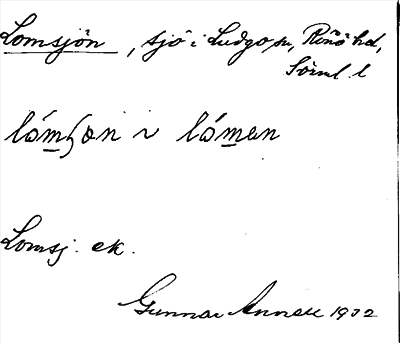 Lomsjön, sjö i Ludgo sn, Rönö hd,
Söml l
lómʃɷn i v lóman
Lomsj. ek.
Gunnar 1932